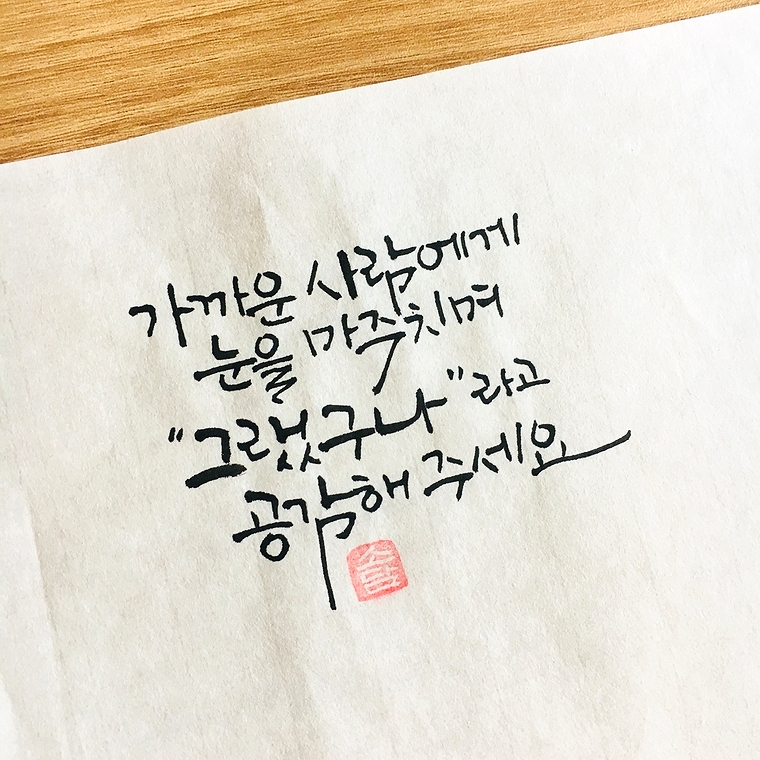 가까운 사람에게
눈을 마주치며
"그랬구나"라고
공감해 주세요
소담